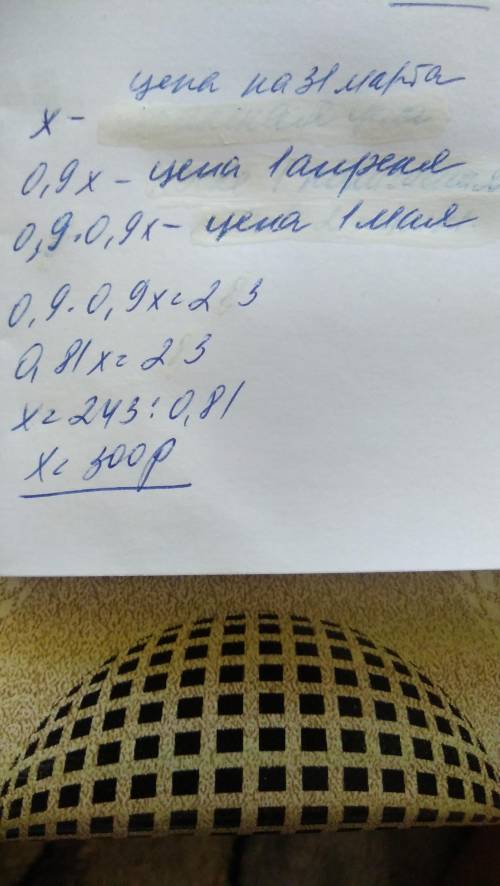 цена на 31 марта
x -
0,9x - цена 1 апреля
0,9·0,9x - цена 1 мая
0,9·0,9x = 2 3
0,81x = 2 3
x = 243 : 0,81
x = 300р